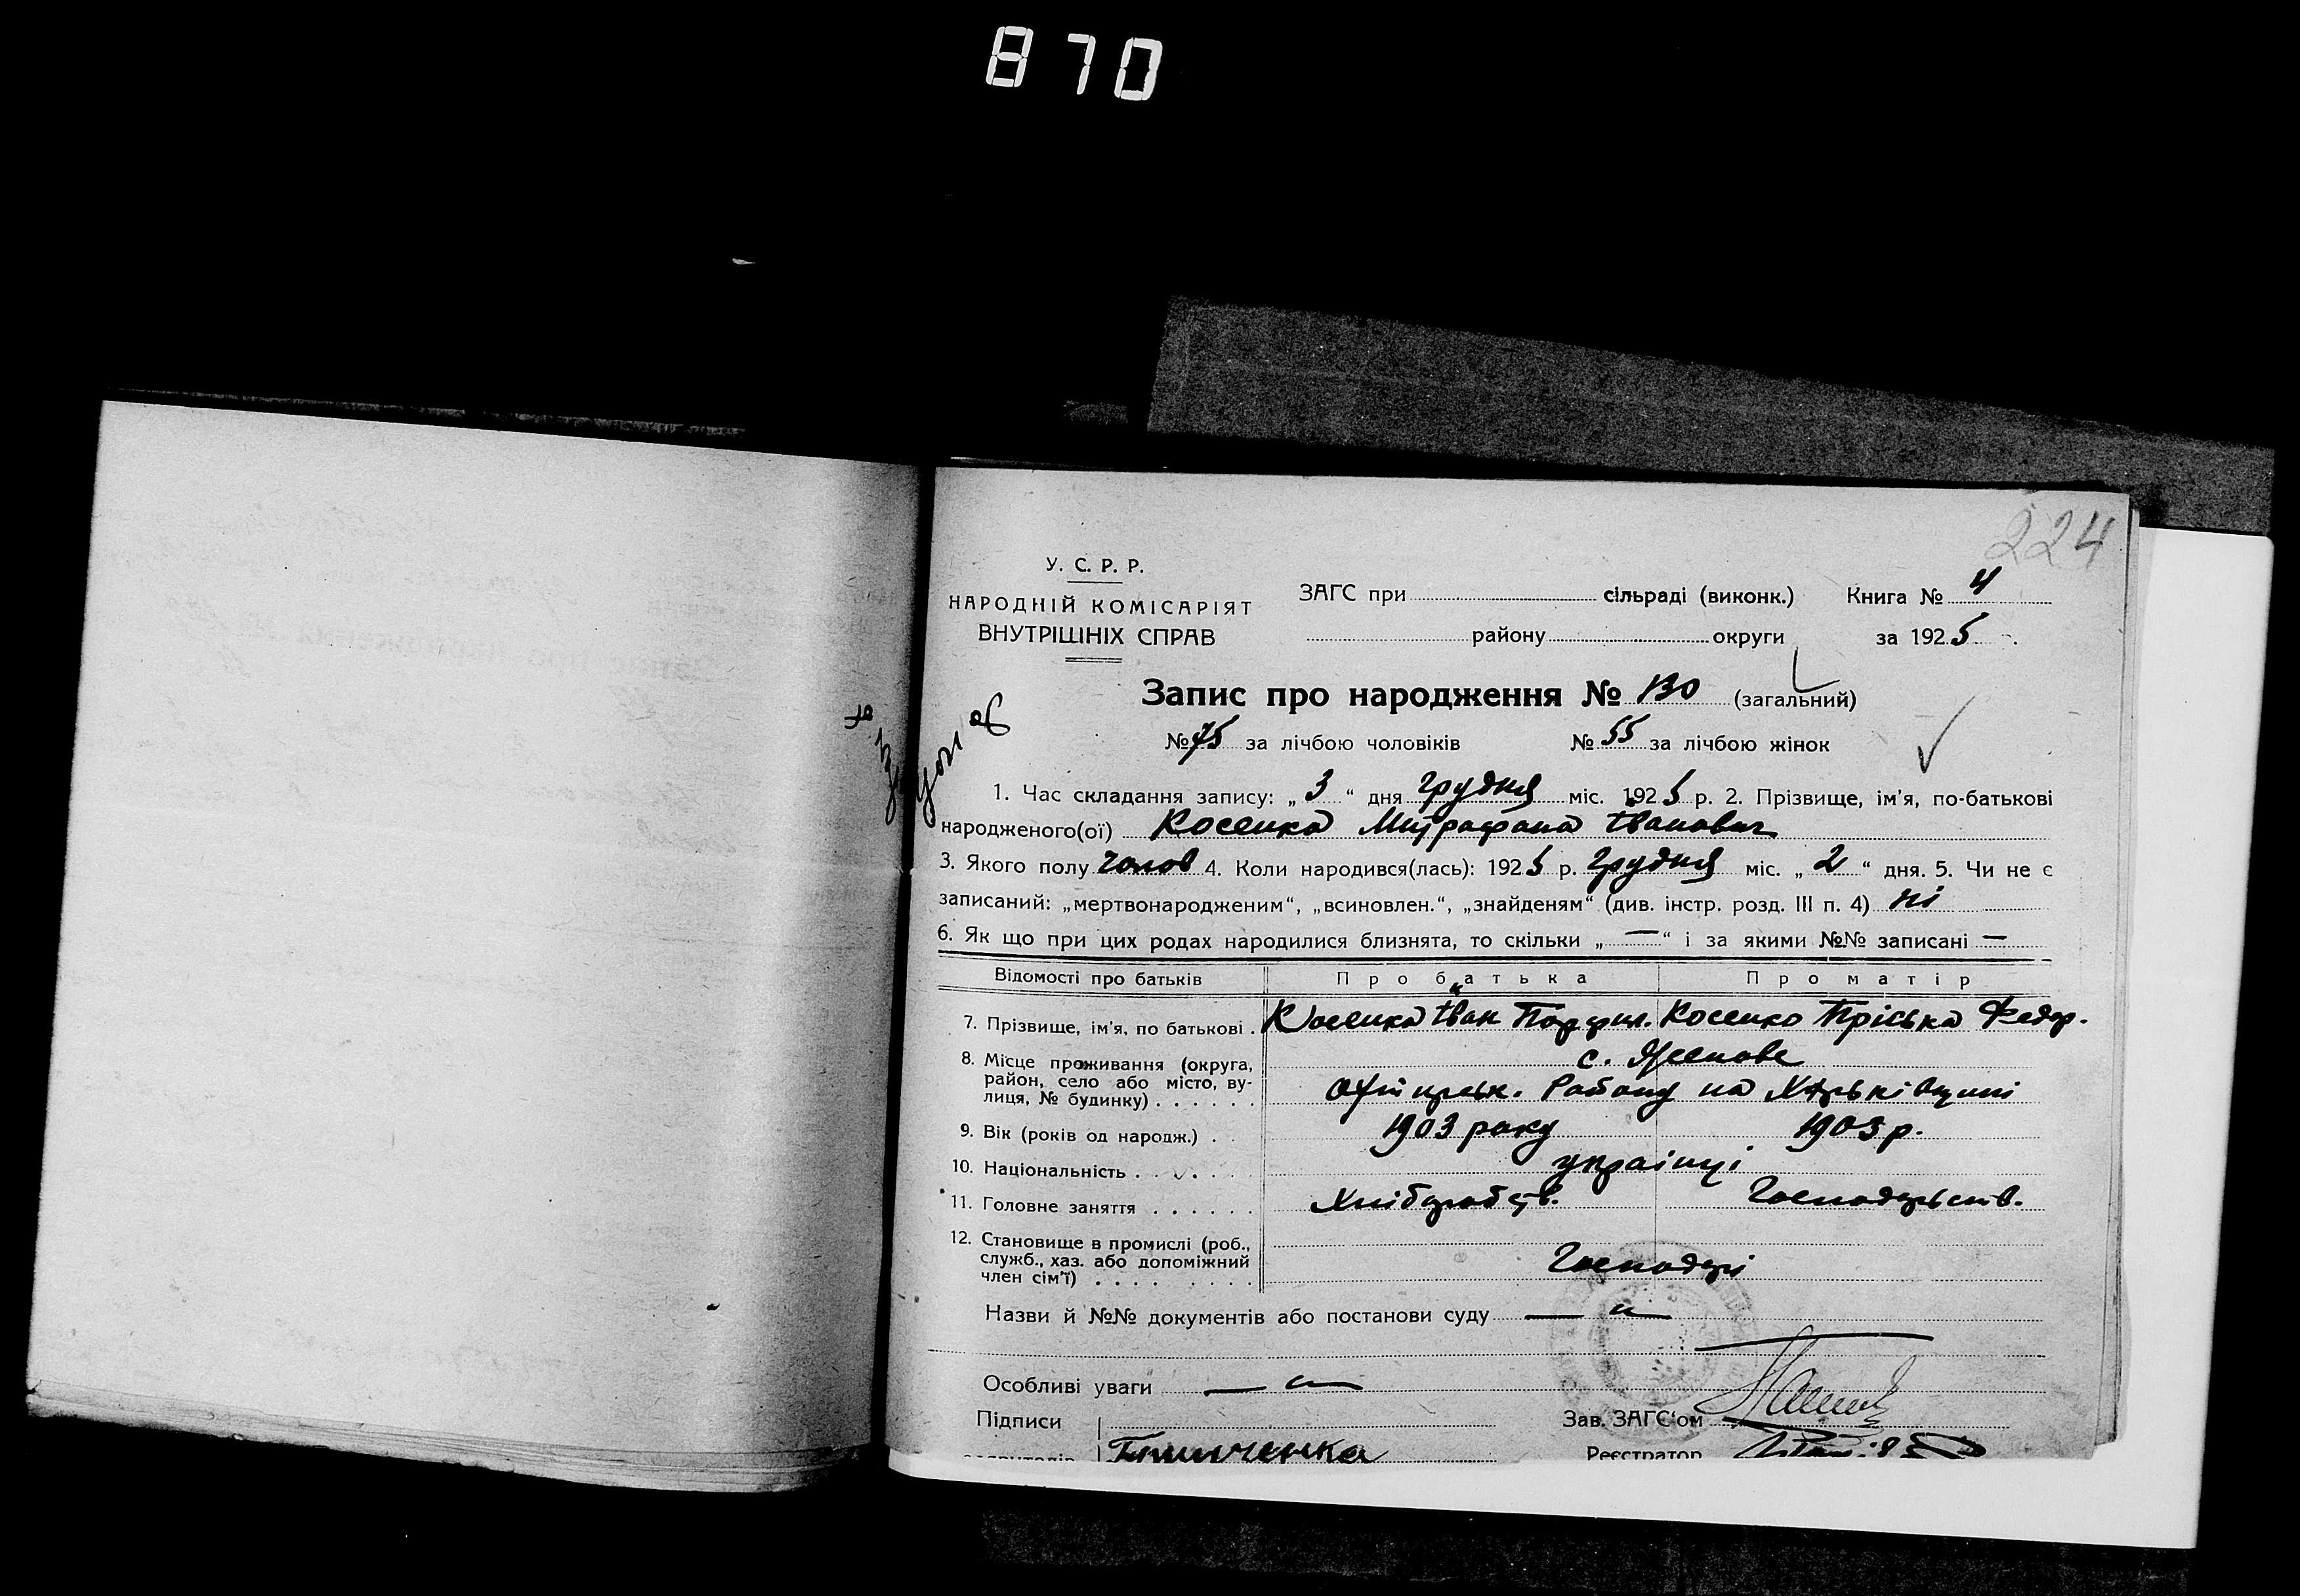 870
224
У. С. Р. Р.
НАРОДНІЙ КОМІСАРІЯТ
ВНУТРІШНІХ СПРАВ
ЗАГС при сільраді (виконк.) Книга № 4
району округи за 1925
Запис про народження № 130 (загальний)
№ 75 за лічбою чоловіків № 55 за лічбою жінок
1. Час складання запису: „ 3 “ дня грудня міс. 1925 р. 2. Прізвище, ім'я, по-батькові
народженого(ої) Косенка Митрафана Іванович
3. Якого полу чолов 4. Коли народився(лась): 1925 р. грудня міс. „ 2 “ дня. 5. Чи не є
записаний: „мертвонародженим“, „всиновлен.“, „знайденям“ (див. інстр. розд. III п. 4) ні
6. Як що при цих родах народилися близнята, то скільки „ — “ і за якими №№ записані —
Відомості про батьків Про батька Про матір
7. Прізвище, ім'я, по батькові . Косенко Іван Порфил. Косенко Пріська Федор.
8. Місце проживання (округа, с. Ясенове
район, село або місто, ву-
лиця, № будинку) . . . . . . Району на Харьківщині
9. Вік (років од народж.) . . 1903 року 1903 р.
10. Національність . . . . . . українці
11. Головне заняття . . . . . . Хліборобств. Господарьств.
12. Становище в промислі (роб.,
служб., хаз. або допоміжний Господарі
член сім'ї) . . . . . . . . .
Назви й №№ документів або постанови суду — " —
Особливі уваги — " —
Підписи Зав. ЗАГС'ом
Гринченка Реєстратор